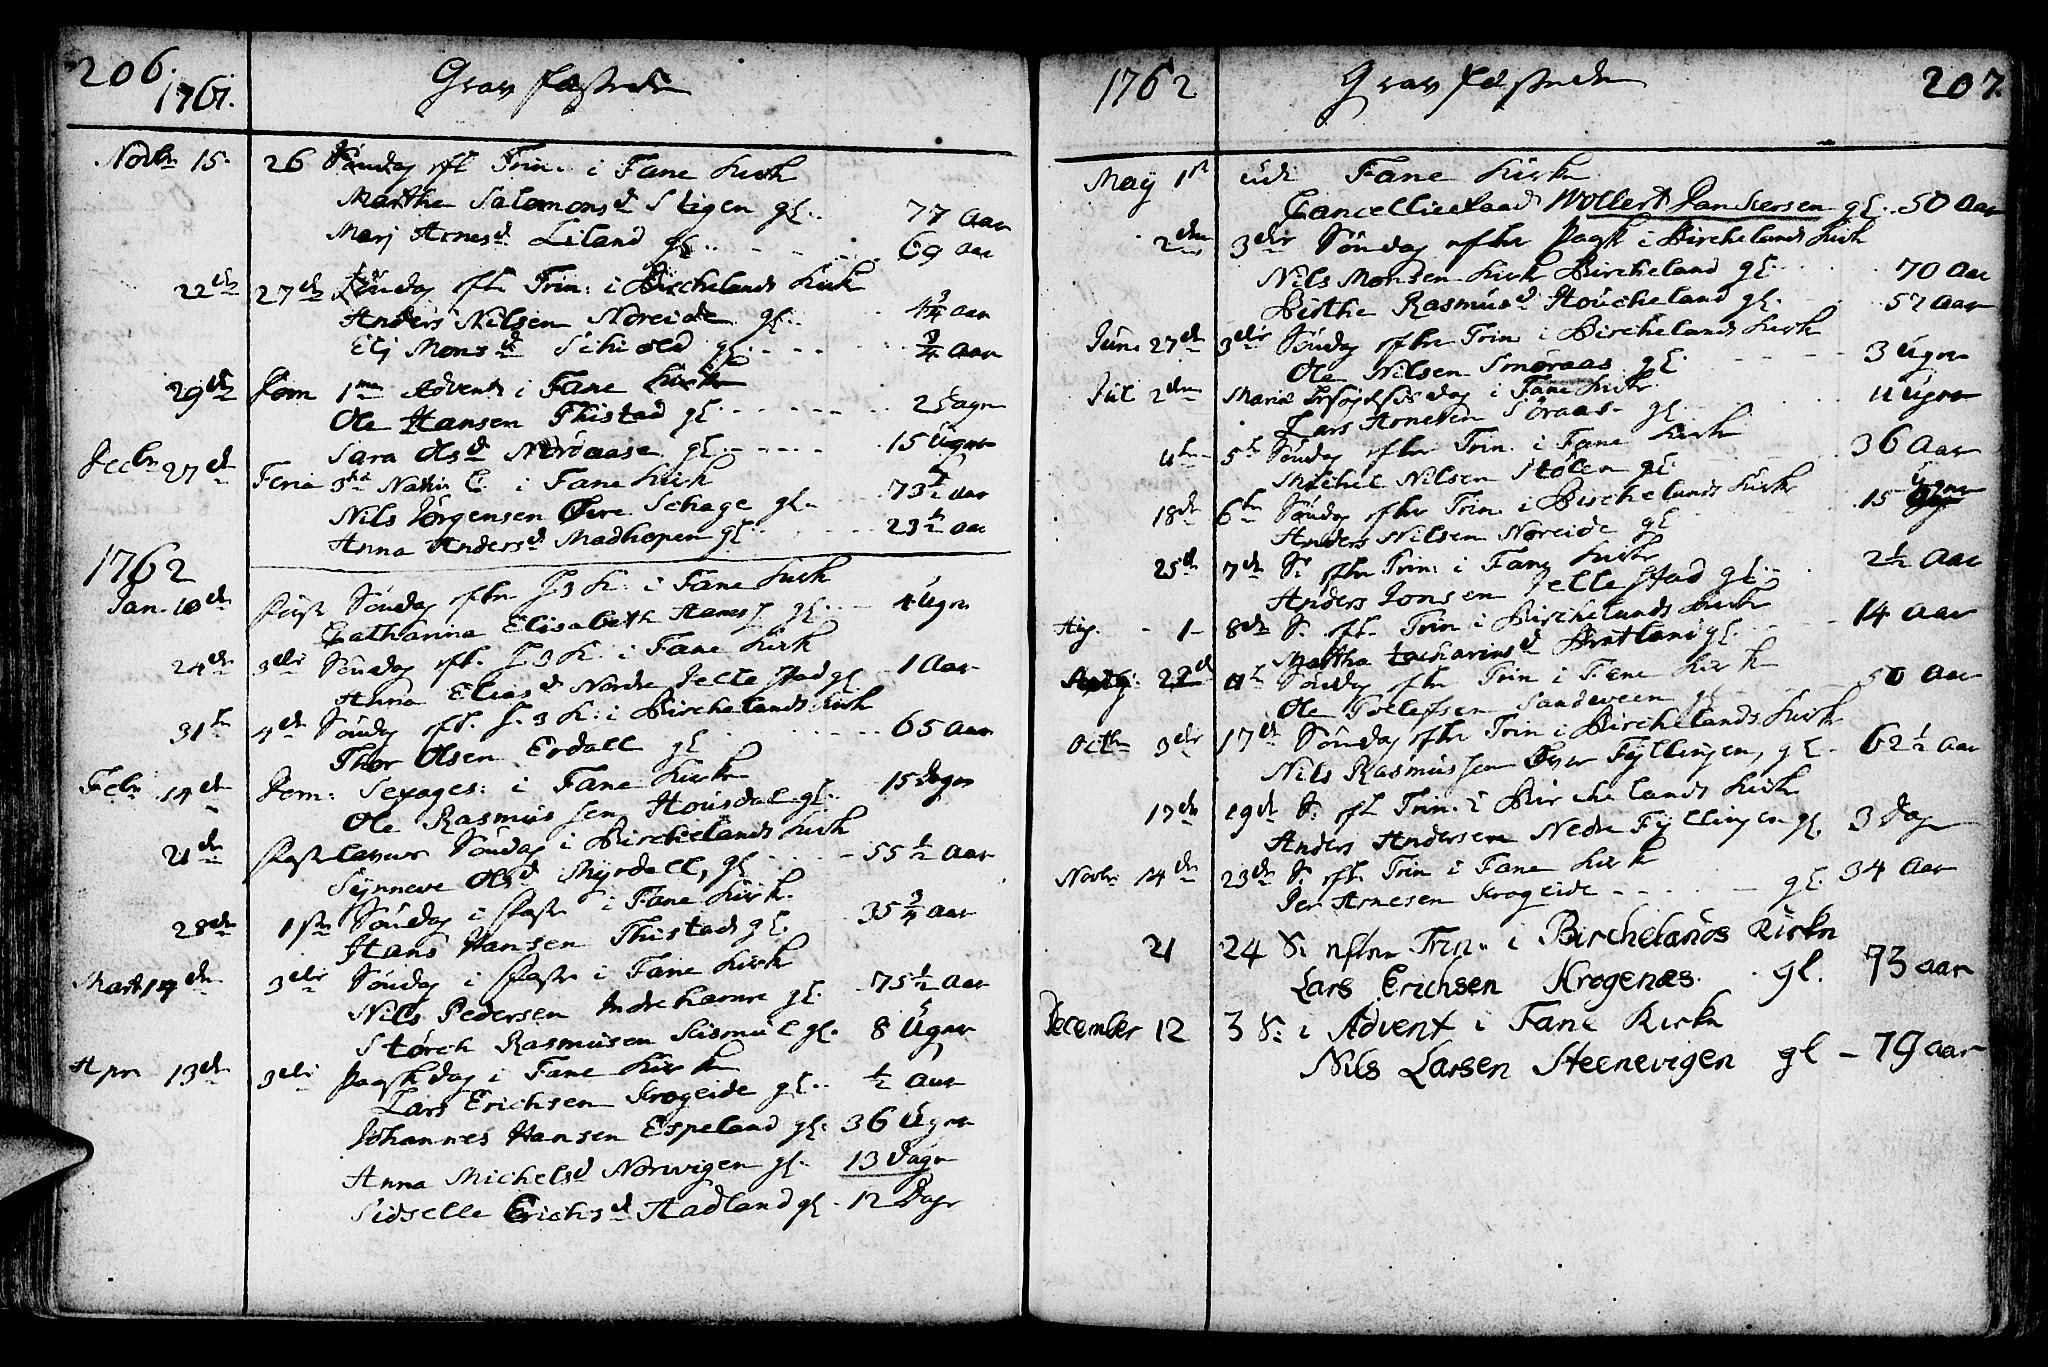 206.
1761. Grav fæstede
Novbr 15. 26 Søndag eft Trin. i Fane Kirk
Marthe Salomonsd Stigen gl.. 77 Aar
Marj Arnesd Liland gl... 69 Aar
22de 27de Søndag efte Trin: i Birchelands Kirk
Anders Nilsen Noreide gl. 4 3/4 Aar
Elj Monsd Schiold gl. 3/4 Aar
29de Dom 1ma Advent i Fane Kirke
Ole Hansen Thistad gl. 2 Dagr
Sara Olsd Nordaase gl. 15 Ugr
Decbr 27de Feria 3tia Nativ C. i Fane Kirk
Nils Jørgensen Øvre Schage gl. 73 1/2 Aar
Anna Andersd Madhopen gl. 23 1/2 Aar
1762
Jan. 10de første Søndag efter H 3 K: i Fane Kirk
Catharina Elisabeth gl. 4 Ugr
24de 3die Søndag eft. H 3 K: i Fane Kirk
Anna Eliasd Nordre Jellestad gl 1 Aar
31te 4de Søndag eft. H. 3 K: i Birchelands Kirk
Thor Olsen Erdall gl 65 Aar
Febr 14de Dom: Sexages: i Fane Kirke
Ole Rasmussen Housdal gl. 15 Dagr
21de Fastelavns Søndag i Birchelands Kirk
Synneve Olsd Myrdell, gl 55 1/2 Aar
28de 1ste Søndag i Faste i Fane Kirk.
Hans Hansen Thistad gl. 35 3/4 Aar
Mart 14de 3die Søndag i Faste i Fane Kirk
Nils Pedersen Indre Hamre gl. 75 1/2 Aar
Størch Rasmusen gl. 8 Ugr
Apr 13de 3die Paaskedag i Fane Kirk
Lars Erichsen Krogeide gl.. 1/2 Aar
Johannes Hansen Espeland gl. 36 Ugr
Anna Michelsd Norvigen gl. 13 Dagr
Sidselle Erichsd Hadland gl. 12 Dagr
1762 Grav fæstede 207.
May 1st udi Fane Kirk
Cancellieraad Wollert Danchersen gl. 50 Aar
2den 3die Søndag efter Paask i Birchelands Kirk
Nils Monsen Kirk Bircheland gl. 70 Aar
Birthe Rasmusd Stoucheland gl. 57 Aar
Juni 27de 3die Søndag efter Trin. i Birchelands Kirk
Ole Nilsen Smøraas gl. 3 Ugr
Jul 2den Mariæ Besøgelses dag i Fane Kirk
Lars Arnesen Søraas gl. 11 Ugr
11te 5te Søndag efter Trin. i Fane Kirk
Michel Nilsen Stølen gl. 36 Aar
18de 6te Søndag efter Trin. i Birchelands Kirk
Anders Nilsen Noreide gl 15 Ugr
25de 7de S. efter Trin: i Fane Kirk
Anders Jonsen Jellestad gl. 2 1/2 Aar
Aug. 1 8de S. eft. Trin i Birchelands Kirk
Martha Zachariasd Bratland gl. 14 Aar
22de 11te Søndag efter Trin i Fane Kirk
Ole Tollefsen Sandveen gl 50 Aar
Octbr 3die 17de Søndag efter Trin i Birchelands Kirk
Nils Rasmussen Øvre Fyllingen, gl. 62 1/2 Aar
17de 19de S. eft Trin. i Birchelands Kirk
Anders Andersen Nedre Fyllingen gl. 3 Dage
Novbr 14de 23de S. eft. Trin i Fane Kirk
Per Arnesen Krogeide gl. 34 Aar
21 24 S: efter Trin: i Birchelands Kirke
Lars Erichsen Krogenæs. gl. 73 aar
December 12 3 S: i Advent i Fane Kirke
Nils Larsen Steenevigen gl 79 aar